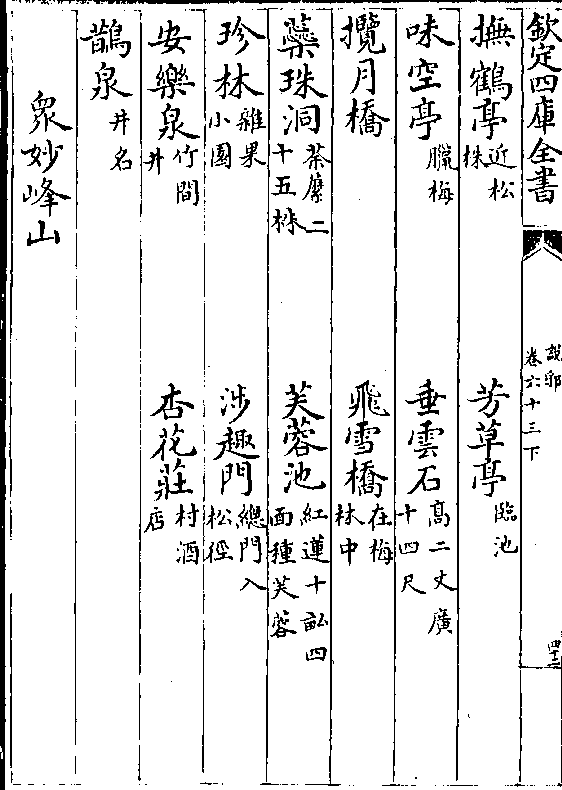 欽定四庫全書
說郛
卷六十三下
四十二
撫鶴亭近松
株
芳草亭臨池
味空亭臘梅
垂雲石高二丈廣
十四尺
攬月橋
飛雪橋在梅
林中
蘂珠洞荼䕷二
十五株
芙蓉池紅蓮十畝四
面種芙蓉
珍林雜果
小園
涉趣門總門入
松徑
安樂泉竹間
井
杏花莊村酒
店
鵲泉井名
衆妙峰山